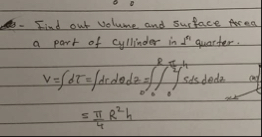 Find out volume and surface Area
a part of cyllinder in 1st quarter.
V = ∫dτ = ∫dr dθ dz = ∫₀ᴿ ∫₀^{π/2} ∫₀ʰ s ds dθ dz
= π/4 R² h